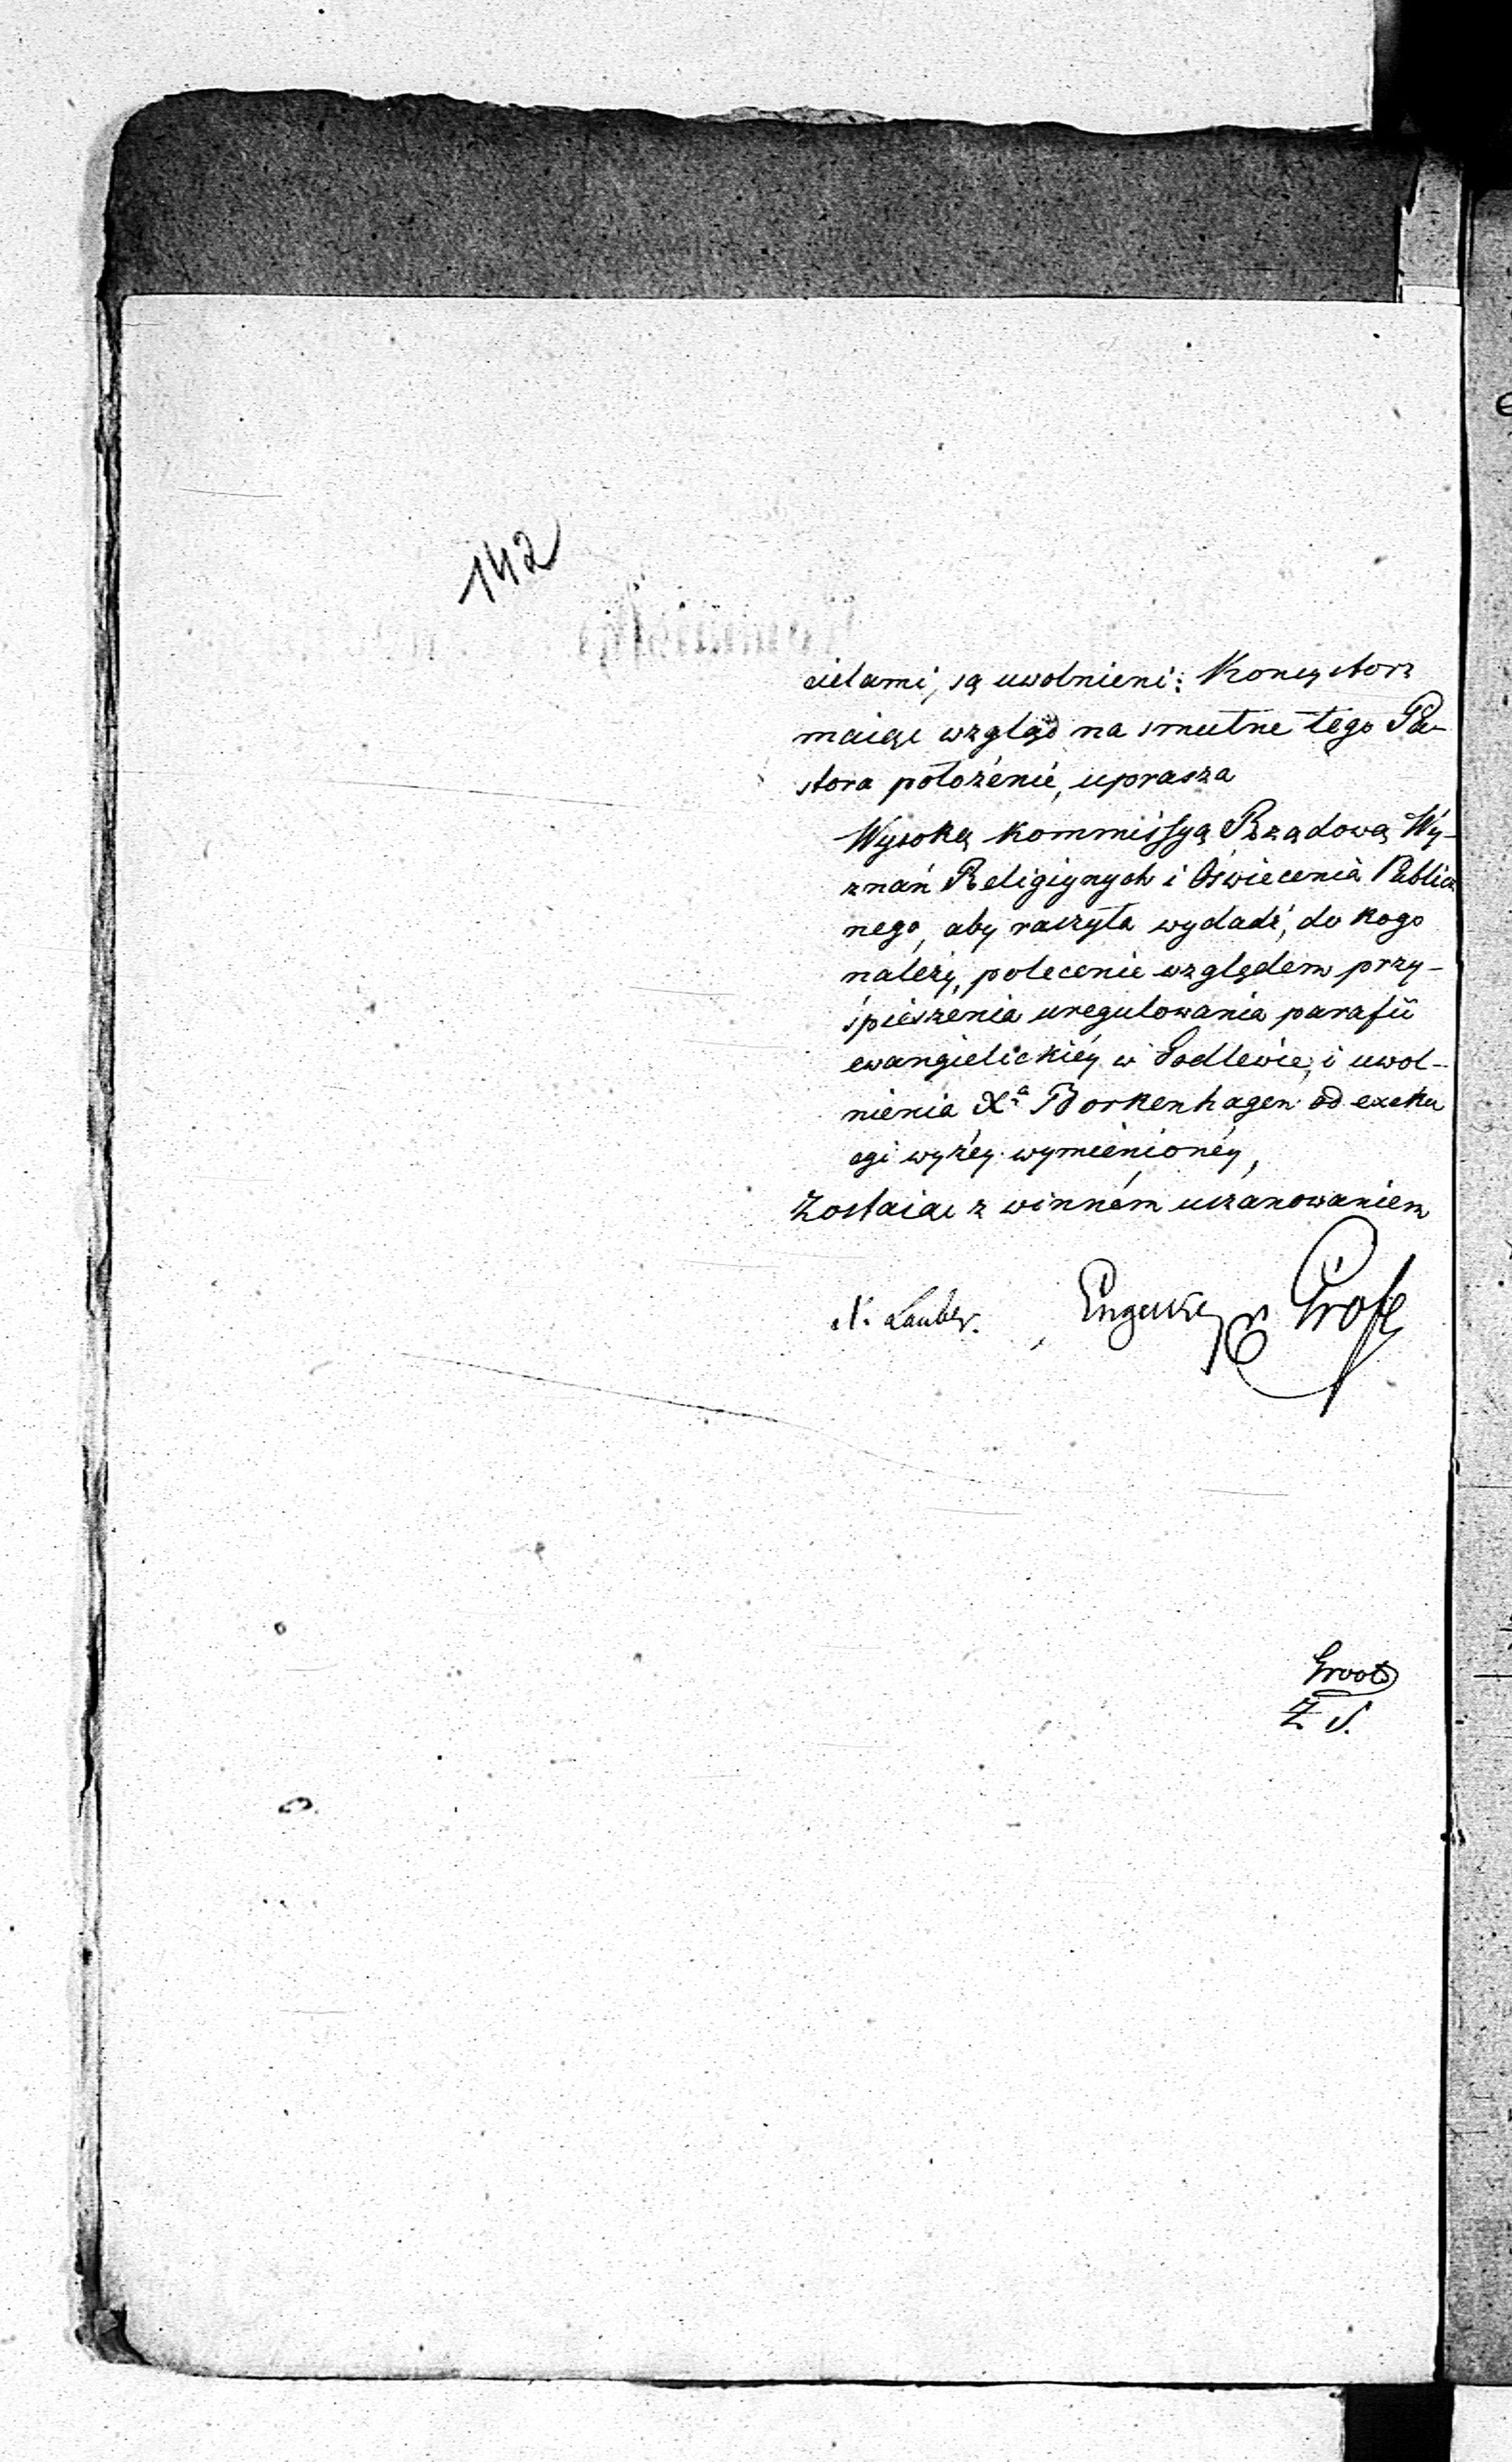 142
cielami, są uwolnieni: Konsystorz
maiąc wzgląd na smutne tego Pa-
stora położenie, uprasza
Wysoką Kommissyą Rządową Wy-
znań Religiynych i Oświecenia Publicz
nego, aby raczyła wydadź, do kogo
należy, polecenie względem przy-
śpieszenia uregulowania parafii
ewangielickiéy w Godlewie, i uwol-
nienia Xa Borkenhagen od exeku
cyi wyżéy wymienionéy,
Zostaiąc z winném uszanowaniem
Lauber.
Groot
Z S.